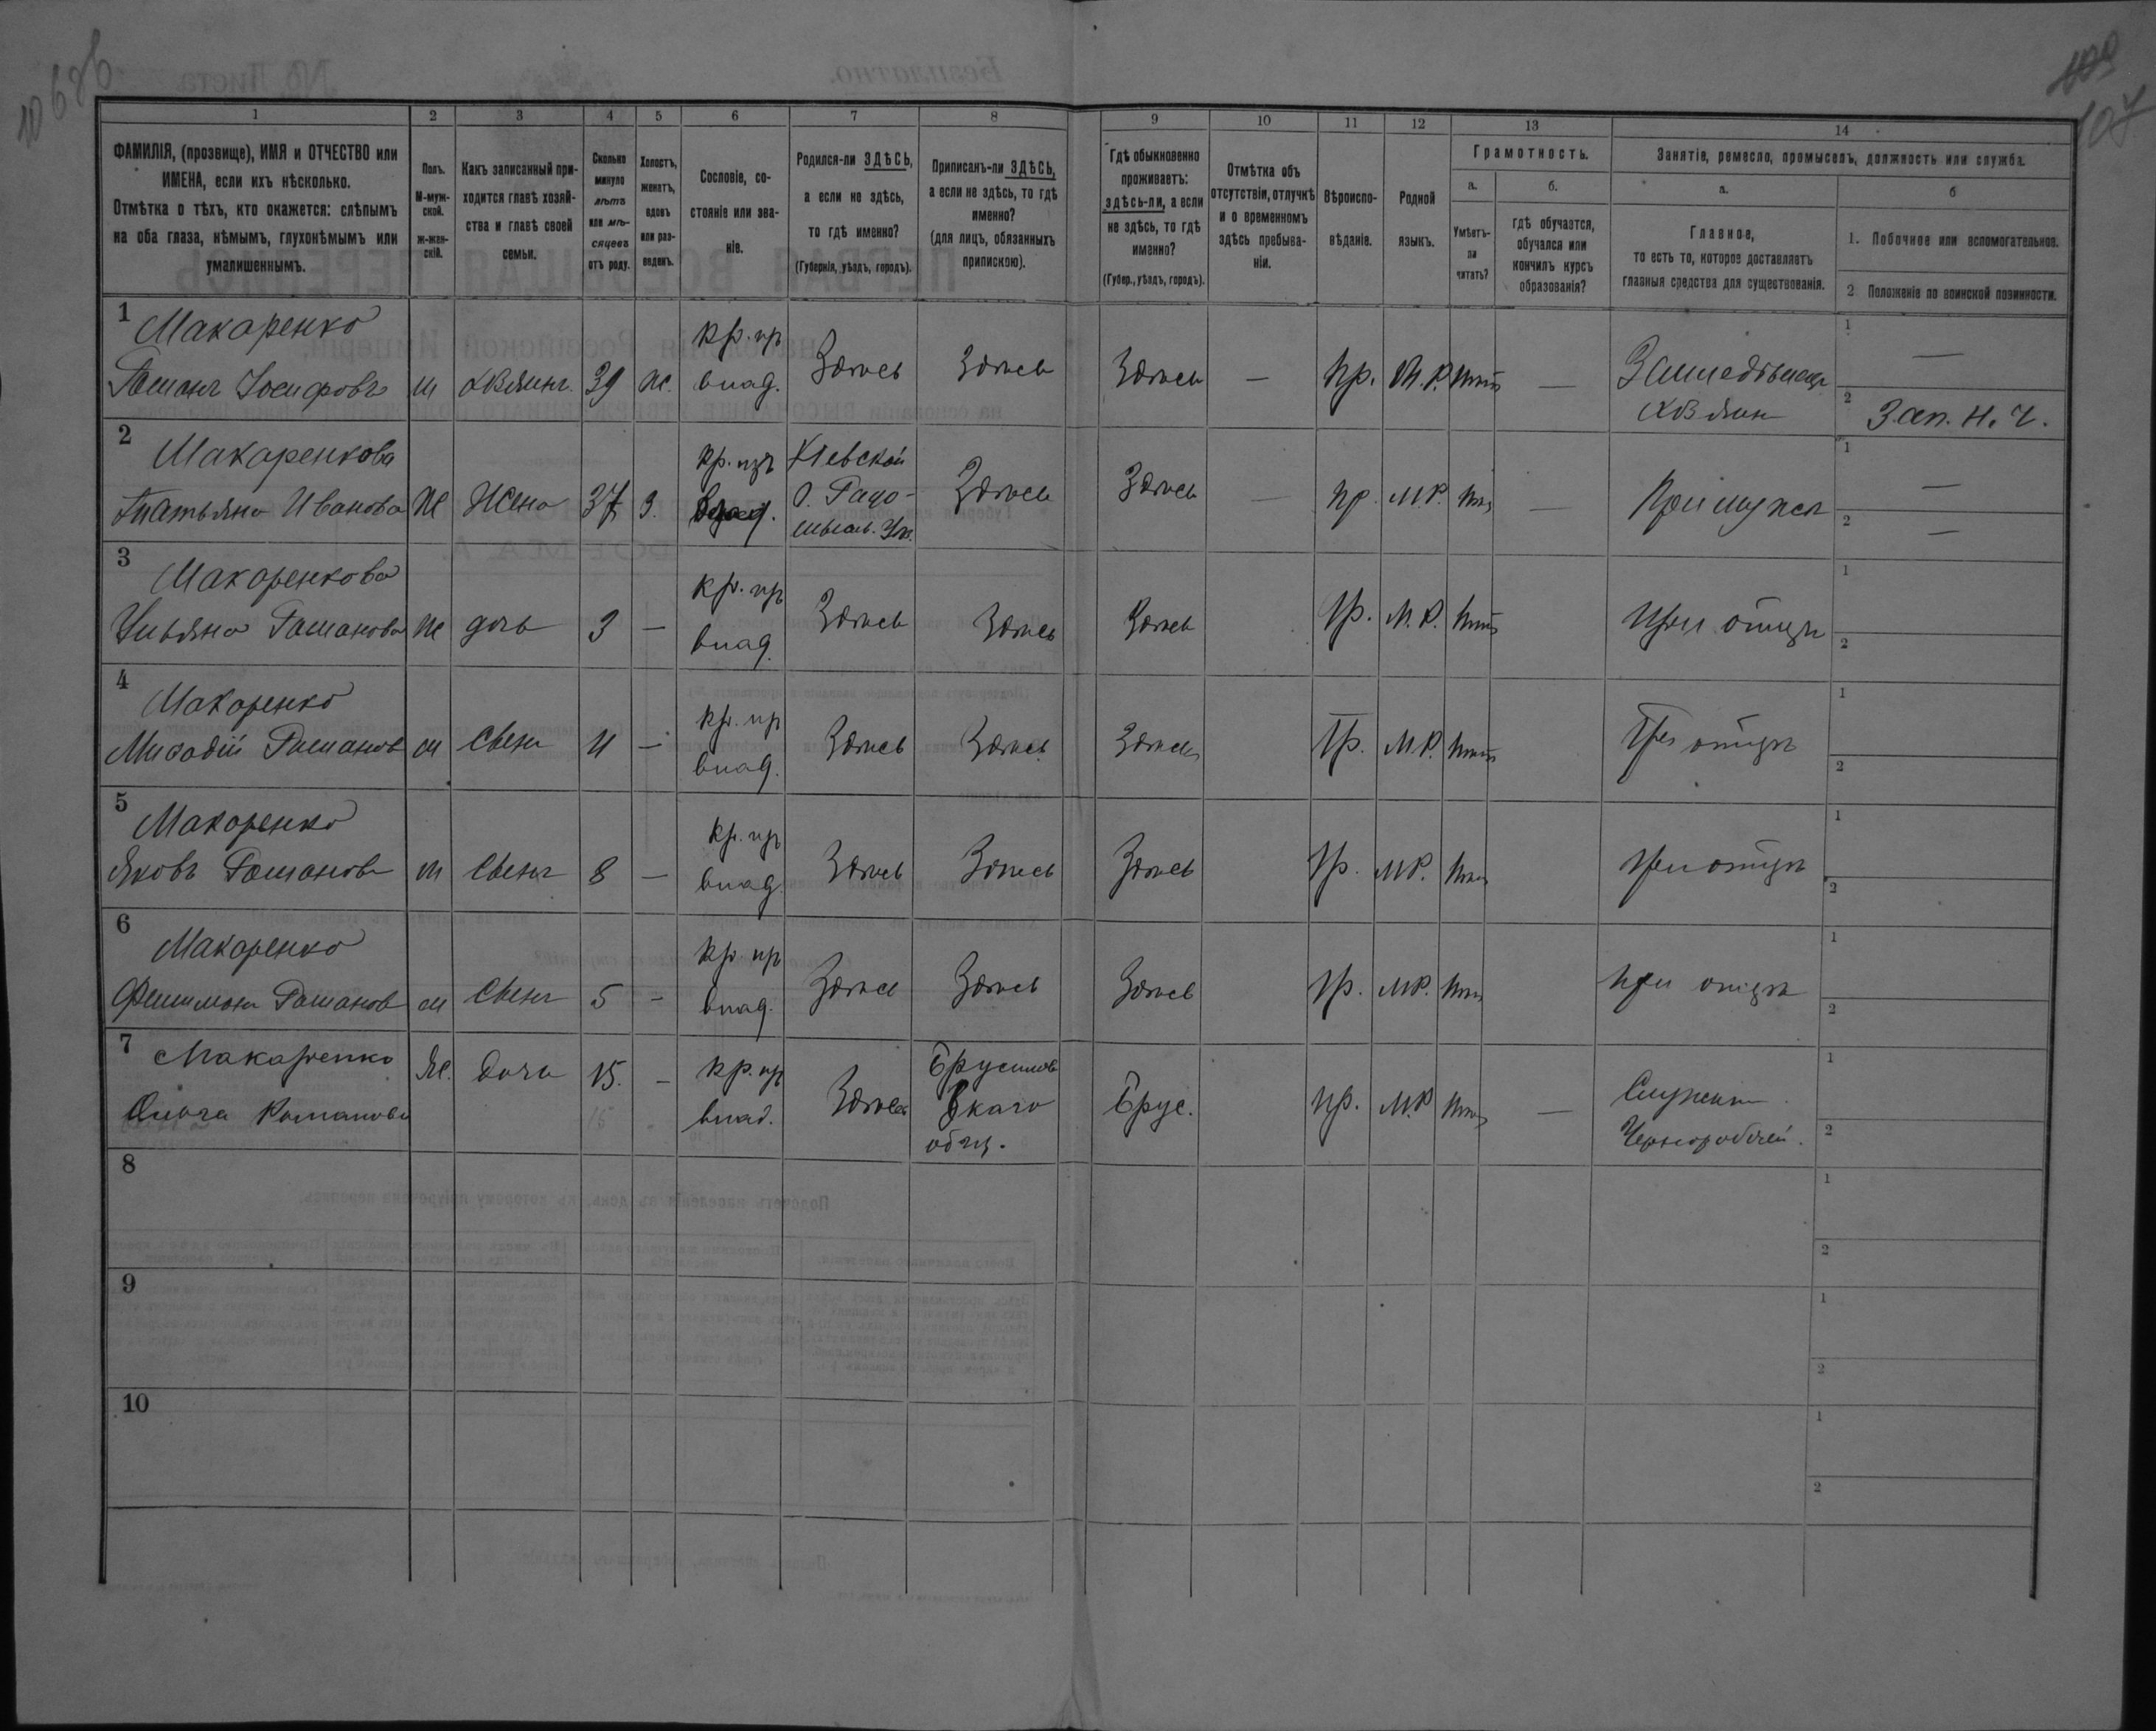 106 об
100
107
1
2
3
4
5
6
7
8
9
10
11
12
13
14
ФАМИЛІЯ, (прозвище), ИМЯ и ОТЧЕСТВО или
ИМЕНА, если ихъ нѣсколько.
Отмѣтка о тѣхъ, кто окажется: слѣпымъ
на оба глаза, нѣмымъ, глухонѣмымъ или
умалишеннымъ.
Полъ.
М-муж-
ской.
ж-жен-
скій.
Какъ записанный при-
ходится главѣ хозяй-
ства и главѣ своей
семьи.
Сколько
минуло
лѣтъ
или мѣ-
сяцевъ
отъ роду.
Холостъ,
женатъ,
вдовъ
или раз-
веденъ.
Сословіе, со-
стояніе или зва-
ніе.
Родился-ли ЗДѢСЬ,
а если не здѣсь,
то гдѣ именно?
(Губернія, уѣздъ, городъ).
Приписанъ-ли ЗДѢСЬ,
а если не здѣсь, то гдѣ
именно?
(для лицъ, обязанныхъ
припискою).
Гдѣ обыкновенно
проживаетъ:
здѣсь-ли, а если
не здѣсь, то гдѣ
именно?
(Губер., уѣздъ, городъ).
Отмѣтка объ
отсутствіи, отлучкѣ
и о временномъ
здѣсь пребыва-
ніи.
Вѣроиспо-
вѣданіе.
Родной
языкъ.
Грамотность.
а.
Умѣетъ-
ли
читать?
б.
гдѣ обучается,
обучался или
кончилъ курсъ
образованія?
Занятіе, ремесло, промыселъ, должность или служба.
а.
Главное,
то есть то, которое доставляетъ
главныя средства для существованія.
б
1. Побочное или вспомогательное.
2 Положеніе по воинской повинности.
1 Макаренко
Романъ Іосифовъ м хозяинъ. 39 ж. кр. изъ влад. Здѣсь Здѣсь Здѣсь — пр. М.Р. нѣтъ —
Земледѣлецъ
хозяин
1 —
2 Зап. н. ч.
2 Макаренкова
Татьяна Иванова ж Жена 37 з. кр. изъ влад. Кіевской г. Радо-
мысль. у. Здѣсь Здѣсь — пр. М.Р. нѣтъ — При мужѣ
1 —
2 —
3 Макаренкова
Ульяна Романова ж дочь 3 — кр. изъ влад. Здѣсь Здѣсь Здѣсь Пр. М.Р. нѣтъ при отцѣ
1
2
4 Макаренко
Романов м Сынъ 11 — кр. изъ влад. Здѣсь Здѣсь Здѣсь Пр. М.Р. нѣтъ При отцѣ
1
2
5 Макаренко
Яковъ Романовъ м Сынъ 8 — кр. изъ влад. Здѣсь Здѣсь Здѣсь Пр. М.Р. нѣтъ при отцѣ
1
2
6 Макаренко
Филимонъ Романов м Сынъ 5 - кр. изъ влад. Здѣсь Здѣсь Здѣсь Пр. М.Р. нѣтъ при отцѣ
1
2
7 Макаренко
Романова Ж. Дочь 15. — кр. изъ влад. Здѣсь Брусилов
скаго
общ. Брус. пр. М.Р нѣтъ —
Служит
Чернорабочей.
1
2
8
1
2
9
1
2
10
1
2